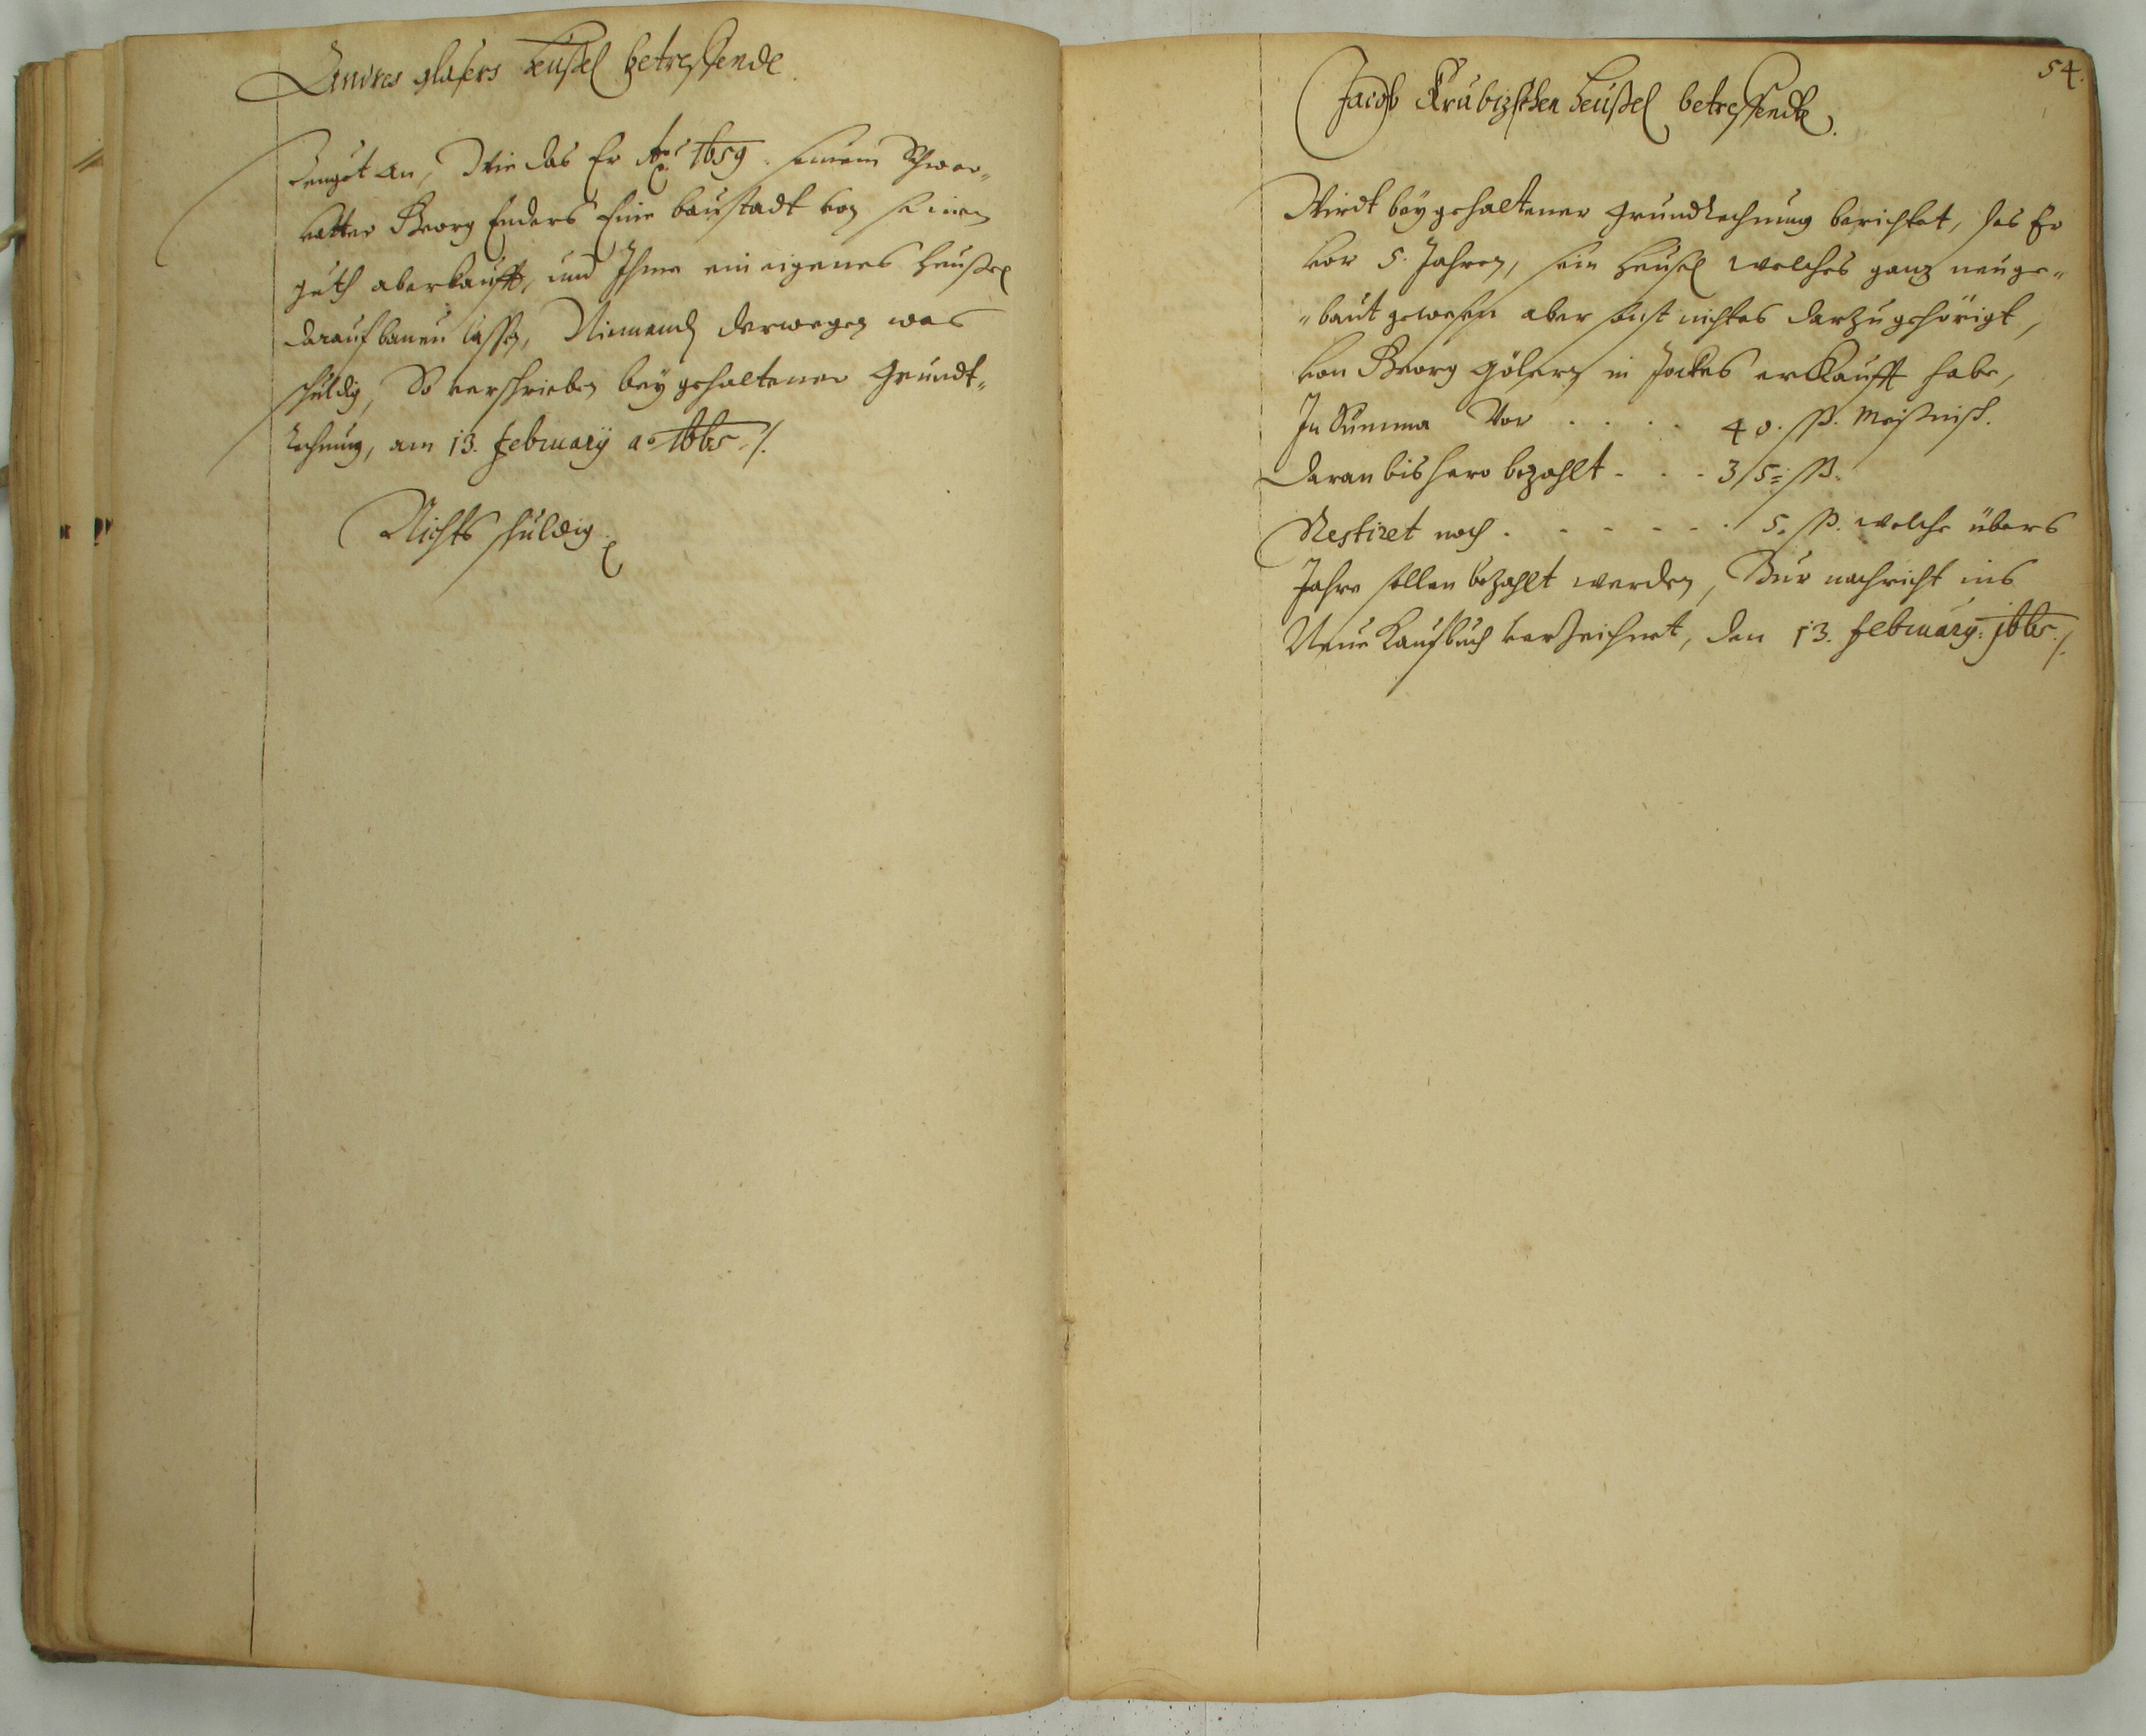 Andres glasers heußel betreffende.
Zeuget an, Wie das Er Ao. 1659. seinem Schwer„
vatter Georg Enders Eine baustadt von seinen
guth aberkaufft, und Ihme ein eigenes heußel
darauf bauen lassen, Niemandt derwegen was
schuldig, So verschrieben bey gehaltener Grundt„
rechnung, am 13. february ao 1665./.
Nichts schuldig.
54.
Jacob Krubizschen heußel betreffende.
Wirdt bey gehaltener Grundrechnung berichtet, das Er
vor 5. Jahren, sein heusel welches ganz neuge„
„baut gewesen aber sonst nichtes darzu gehörigt,
von Georg in erkaufft habe,
In Summa Vor . . . . 40. ßß. Meißnisch.
daran bishero bezahlt - - - 35. ßß.
Restiret noch . - - - - - . 5. ßß. welche übers
Jahre sollen bezahlt werden, Zur nachricht ins
Neue Kaufbuch verzeichnet, den 13. february: 1665./.